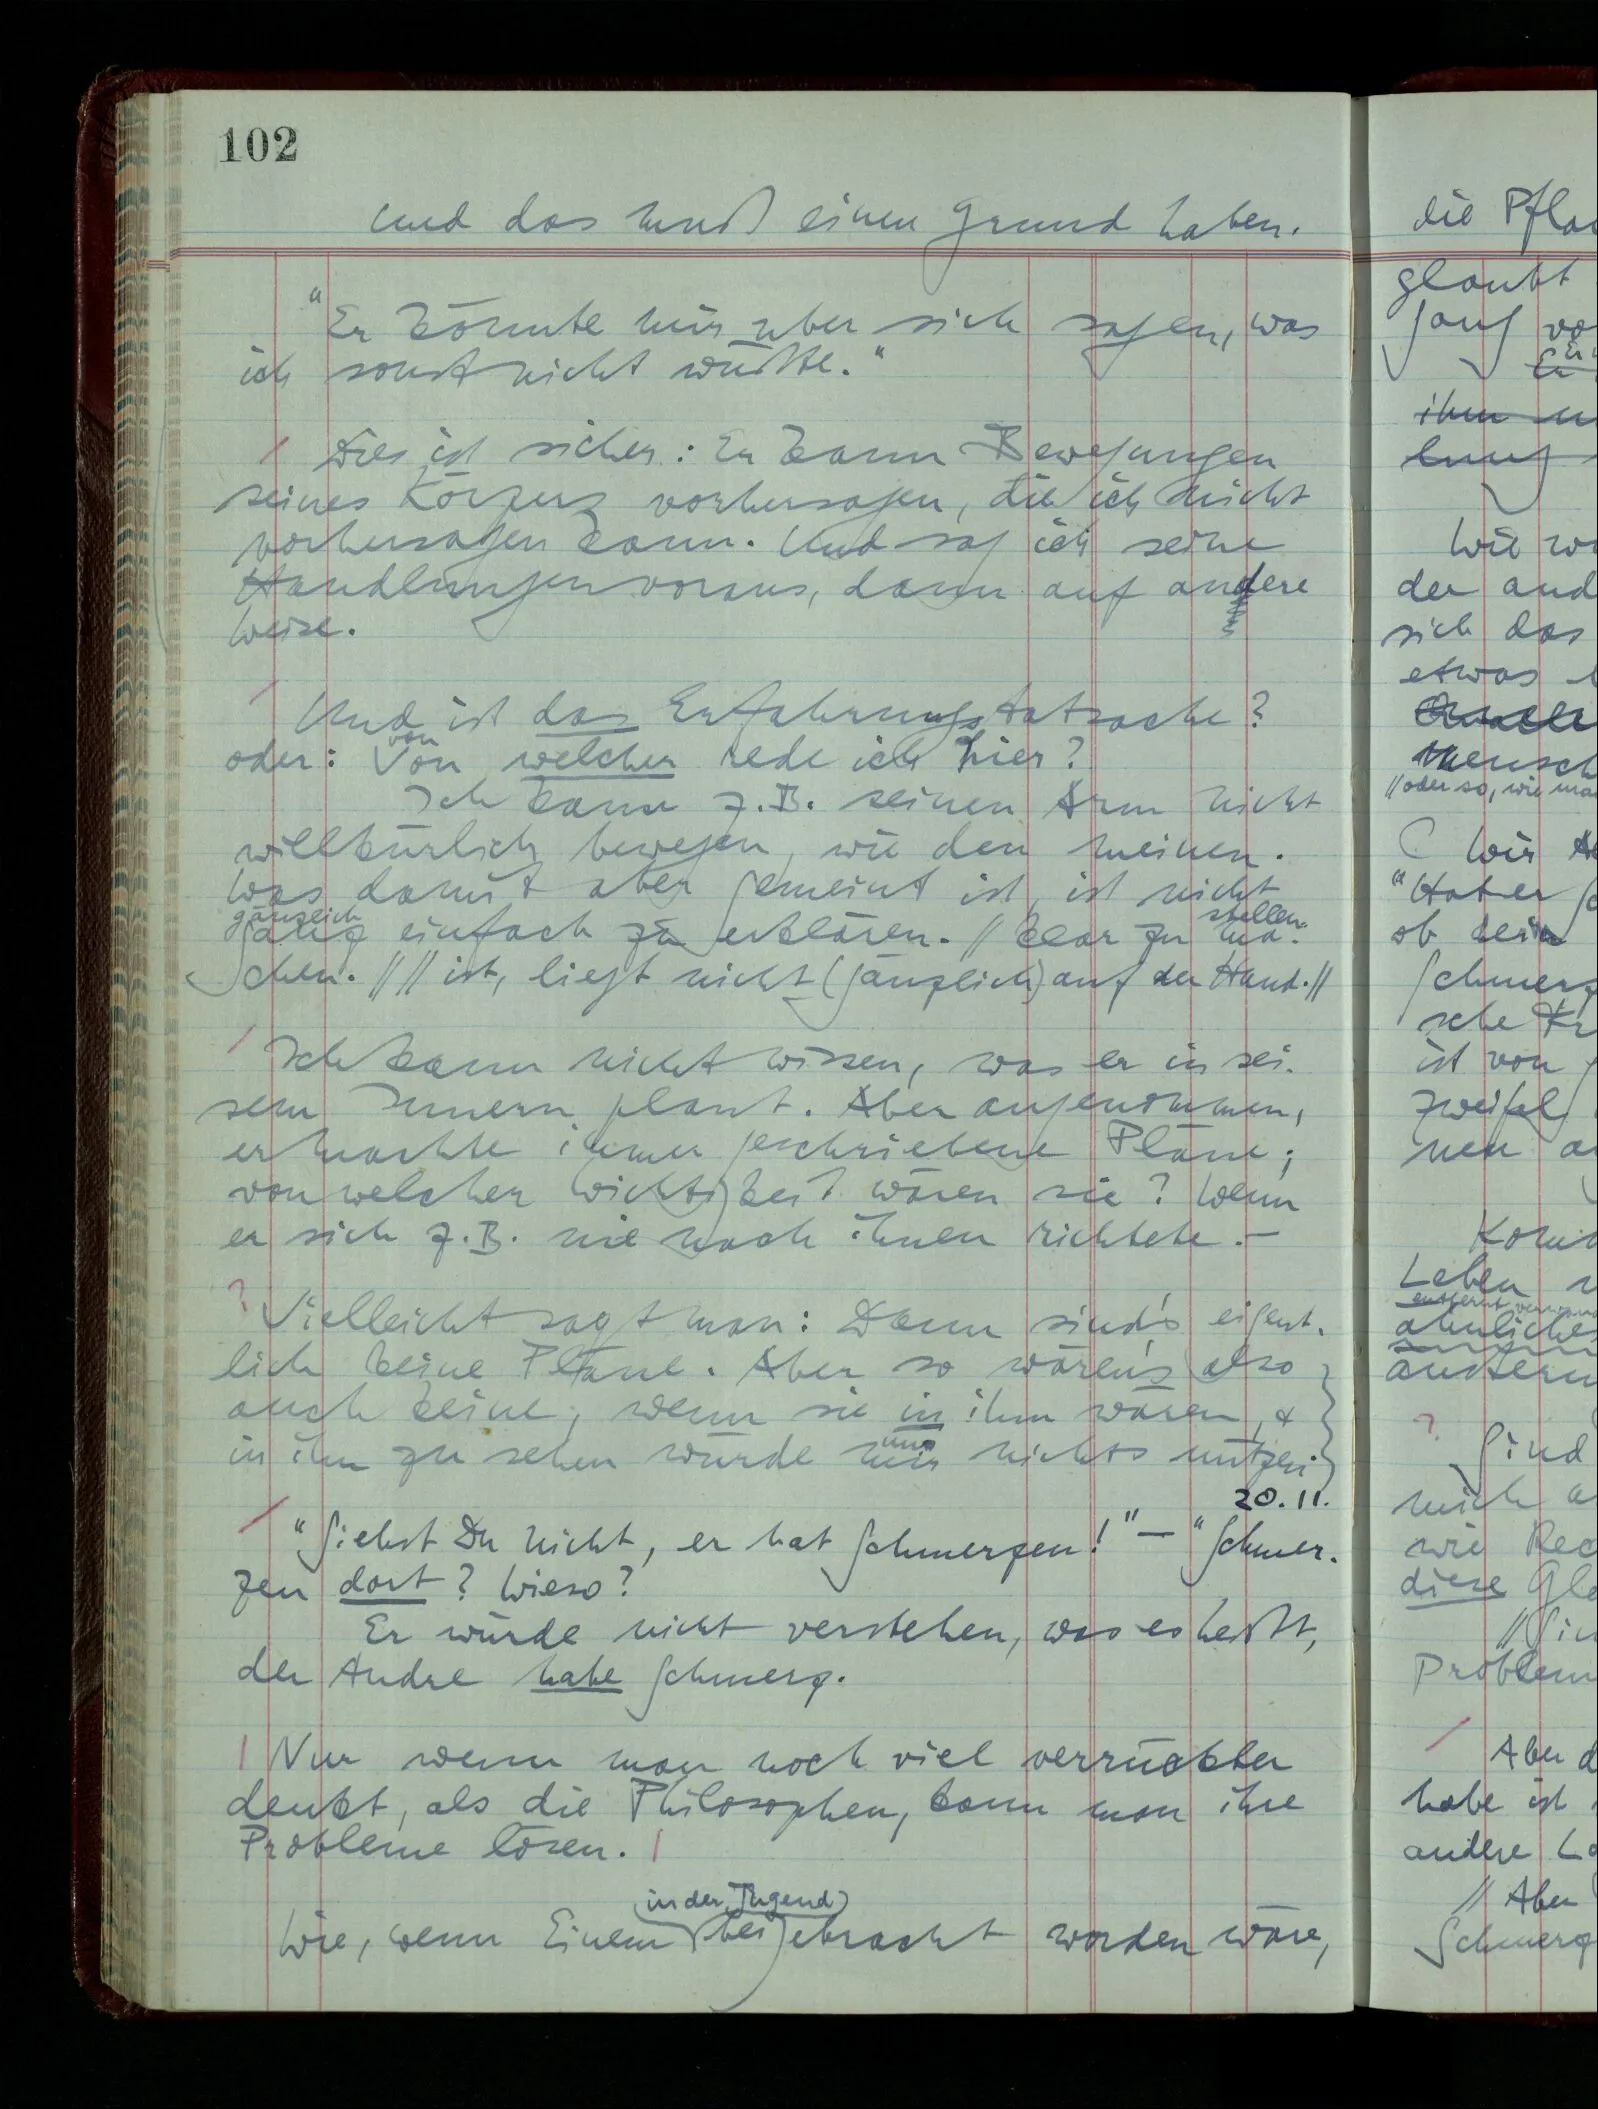 102
und das muß einen Grund haben.
"Er könnte mir über sich sagen, was
ich sonst nicht wüßte."
/ Dies ist sicher: Er kann Bewegungen
seines Körpers vorhersagen, die ich nicht
vorhersagen kann. Und sag ich seine
Handlungen voraus, dann auf andere
Weise.
/ Und ist das Erfahrungstatsache?
von
oder: Von welcher rede ich hier?
Ich kann z.B. seinen Arm nicht
willkürlich bewegen, wie den meinen.
Was damit aber gemeint ist, ist nicht
gänzlich stellen
ganz einfach zu erklären. // klar zu ma-
chen. // // ist, liegt nicht (gänzlich) auf der Hand. //
/ Ich kann nicht wissen, was er in sei-
nem Innern plant. Aber angenommen,
er machte immer geschriebene Pläne;
von welcher Wichtigkeit wären sie? Wenn
er sich z.B. nie nach ihnen richtete. –
? Vielleicht sagt man: Dann sind's eigent-
lich keine Pläne. Aber so wären's also
auch keine, wenn sie in ihm wären, &
uns
in ihn zu sehen würde mir nichts nützen.
20.11.
/ "Siehst Du nicht, er hat Schmerzen!" – "Schmer-
zen dort? Wieso?
Er würde nicht verstehen, was es heißt,
der Andre habe Schmerz.
| Nur wenn man noch viel verrückter
denkt, als die Philosophen, kann man ihre
Probleme lösen. |
(in der Jugend)
Wie, wenn Einem beigebracht worden wäre,
die Pfla
glaubt
ihm
Wie
der and
sich das
etwas
Mensch
// oder so, wie ma
Wir
"Hat er
ob
Schmerz
sche
ist von
Zweifel
nen
Leben
ähnliches
äußern
? Sind
mich
wie Rec
diese
//
Problem
/ Aber d
habe ist
andere
// Aber
Schmerz